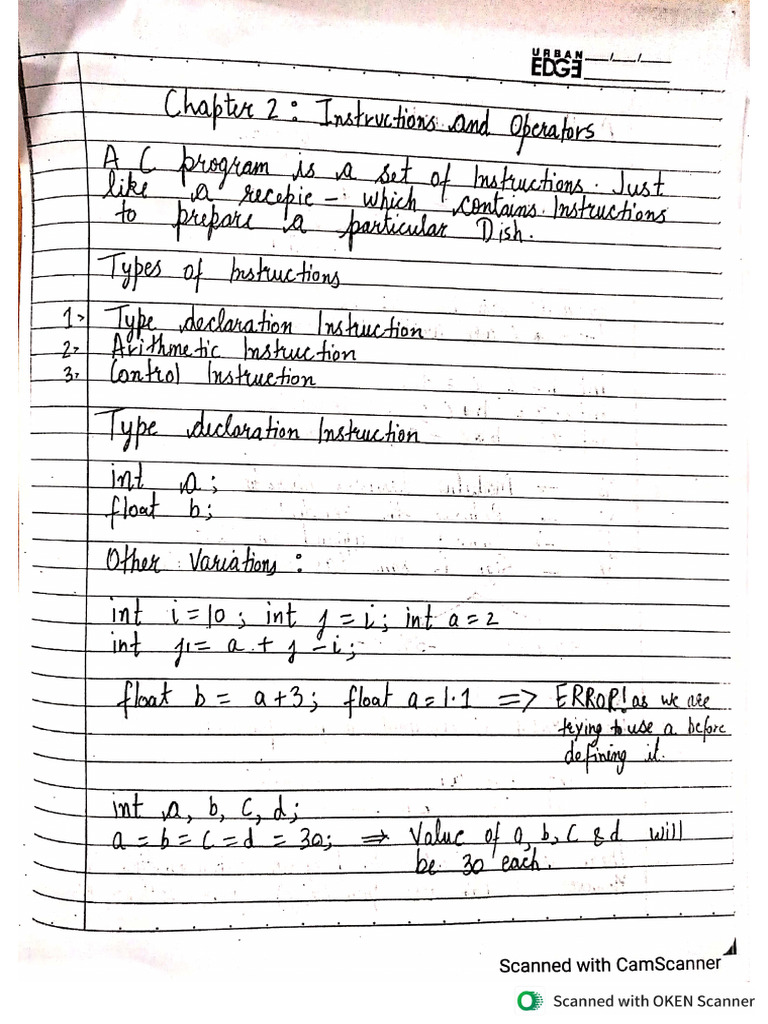 URBAN
EDGE __/__/__
Chapter 2: Instructions and Operators
A C program is a set of Instructions. Just
like a recepie - which contains Instructions
to prepare a particular Dish.
Types of Instructions
1> Type declaration Instruction
2> Arithmetic Instruction
3> Control Instruction
Type declaration Instruction
int a;
float b;
Other Variations:
int i=10; int j=i; int a=2
int j1= a + j -i;
float b= a+3; float a=1.1 => ERROR! as we are
trying to use a before
defining it.
int a, b, c, d;
a = b = c = d = 30; => Value of a, b, c & d will
be 30 each.
Scanned with CamScanner
Scanned with OKEN Scanner